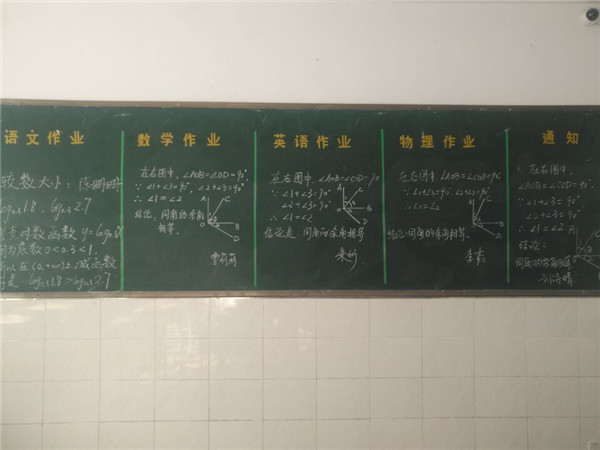 语文作业
较数大小：
log₀.₃1.8，log₀.₃2.7
考查对数函数 y=log₀.₃x
因为底数 0<0.3<1
在(0,+∞)上减函数
log₀.₃1.8>log₀.₃2.7
数学作业
在右图中，∠AOB=∠COD=90°，
∵ ∠1+∠3=90°，∠2+∠3=90°
∴ ∠1=∠2
结论，同角的余角
相等.
A
C
B
O
D
英语作业
在右图中，∠AOB=∠COD=90
∵ ∠1+∠3=90°
∠2+∠3=90°
∴ ∠1=∠2
结论是 同角的余角相等
A
C
B
D
物理作业
在右图中，∠AOB=∠COD=90
∵ ∠1+∠3=90°，∠2+∠3=90°
∴ ∠1=∠2
结论：同角的余角相等.
A
C
B
O
D
通知
在右图中，
∠AOB=∠COD=90°，
∵ ∠1+∠3=90°
∠2+∠3=90°
∴ ∠1=∠2
结论：
同角的余角相等